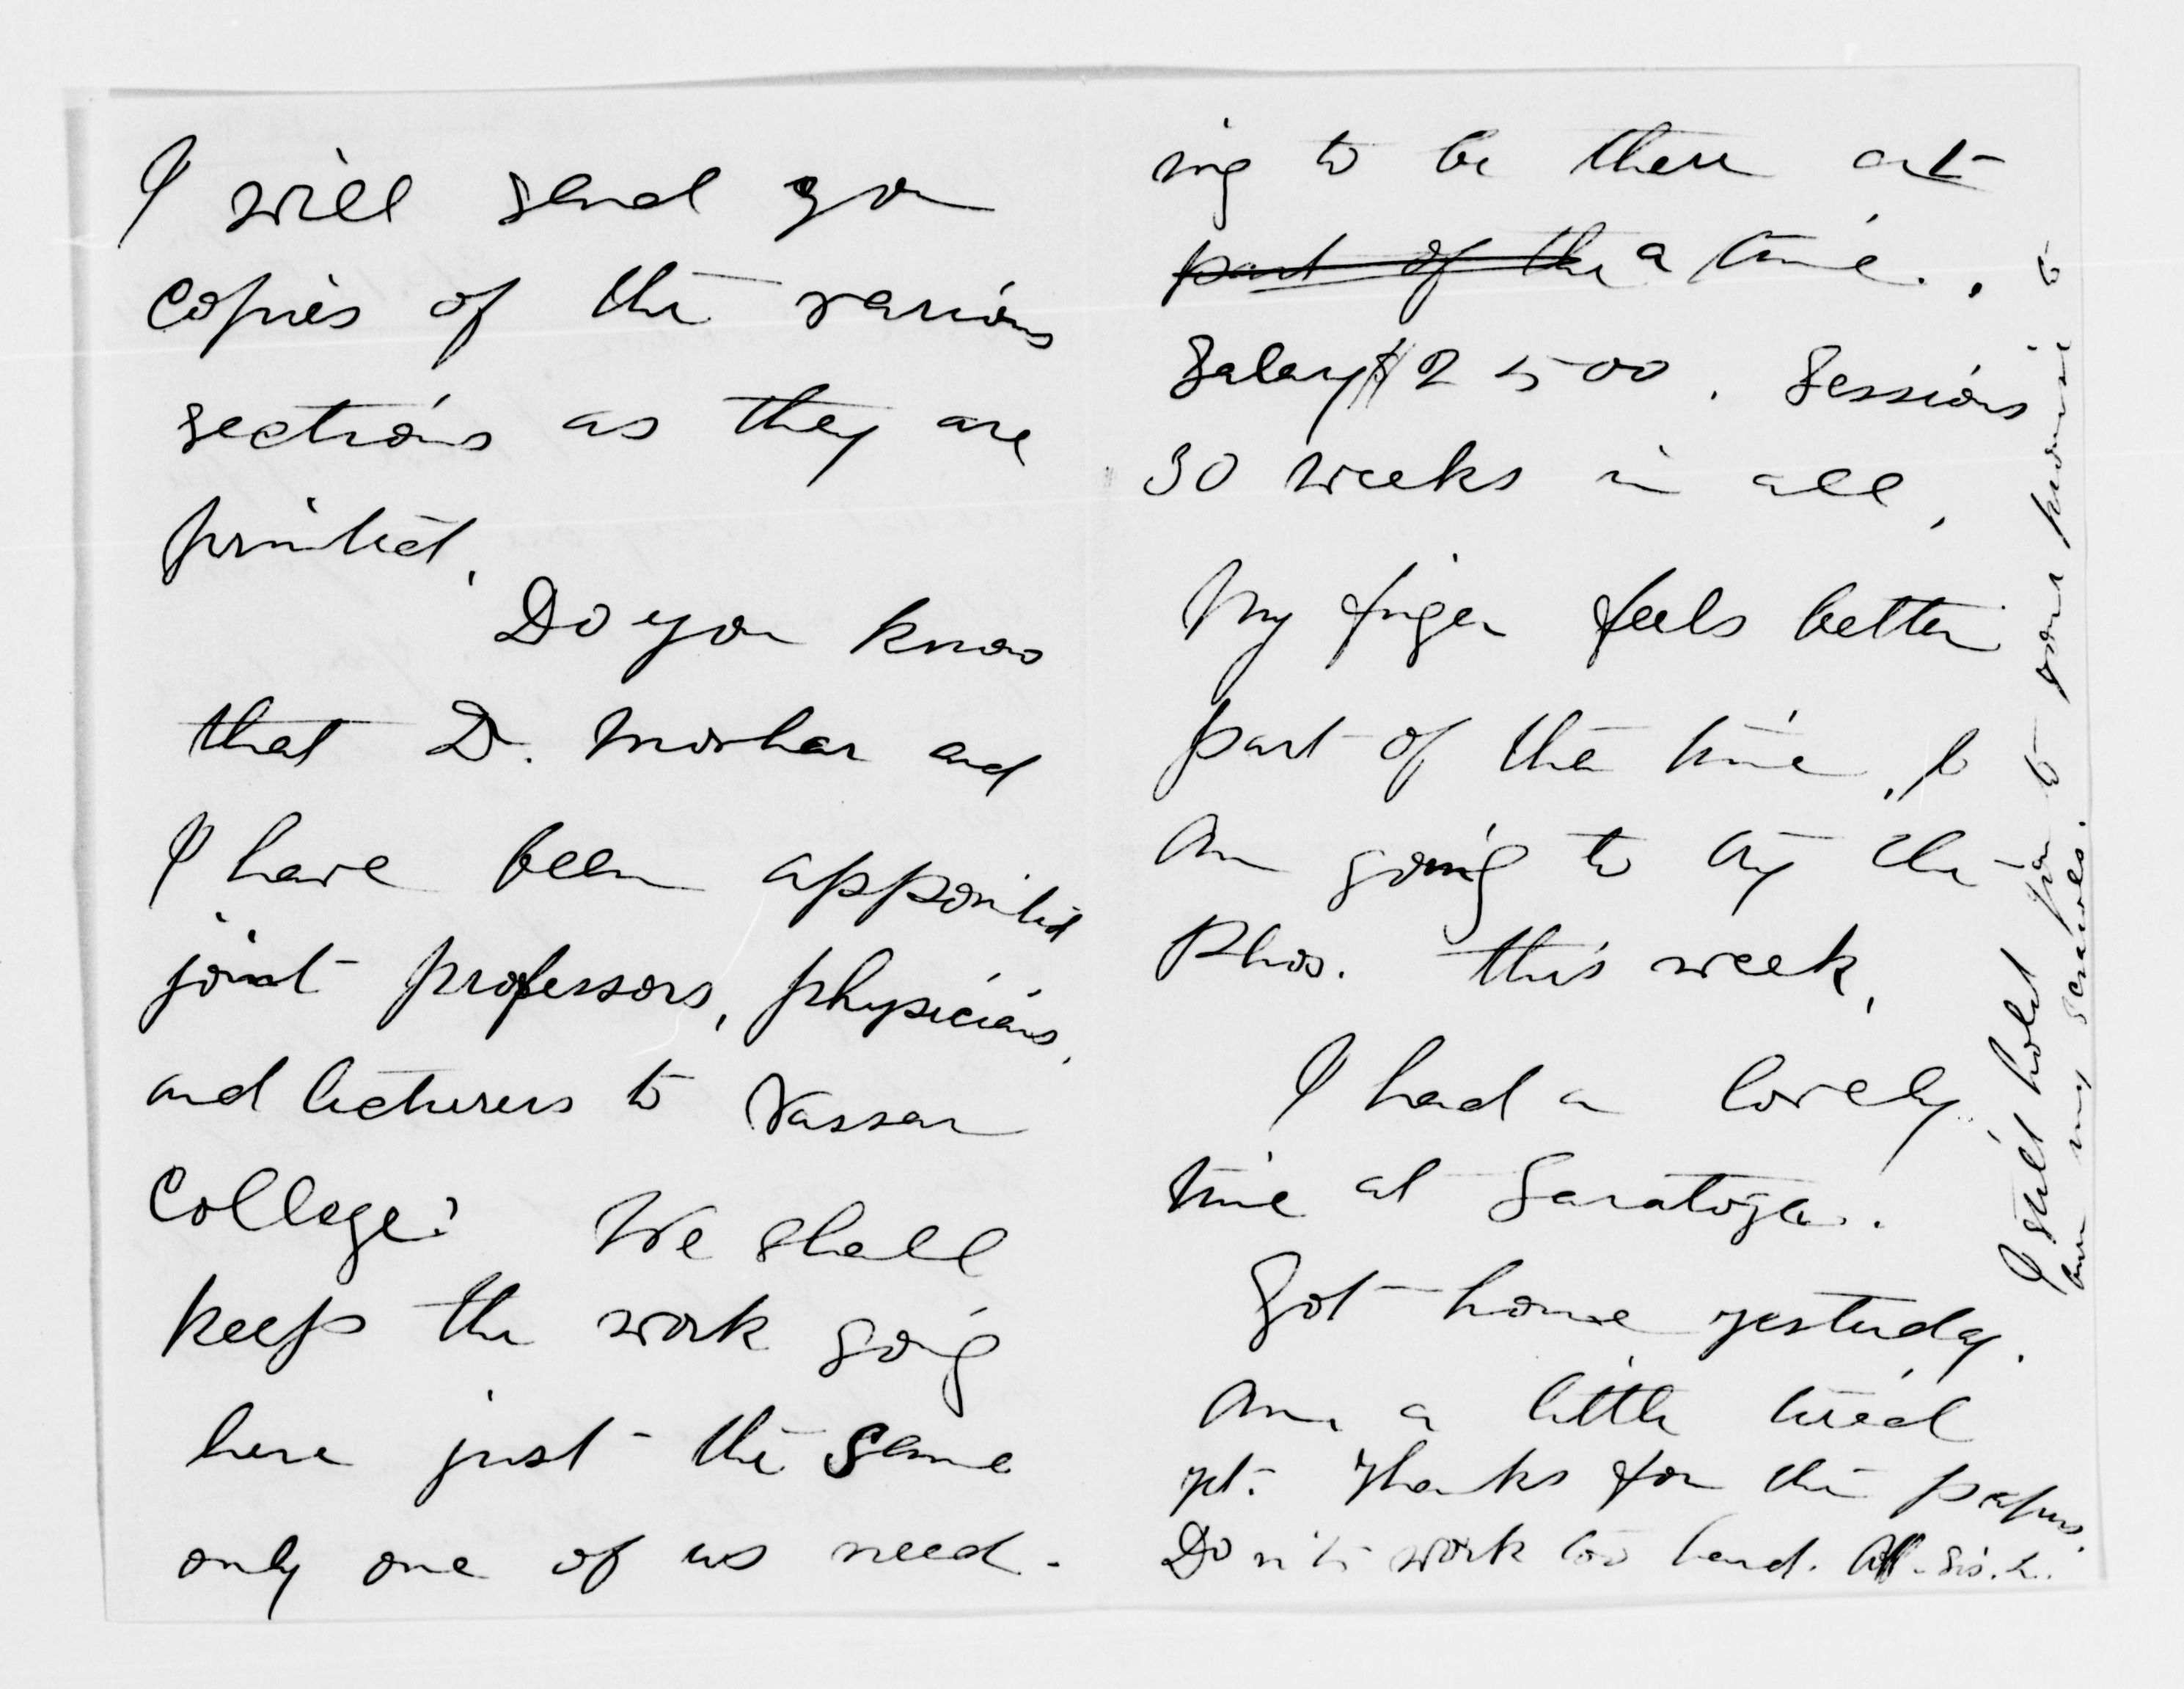 I will send you
copies of the various
sections as they are
printed.
Do you know
that D. Mosher and
I have been appointed
joint professors, physicians,
and lecturers to Vassar
College? We shall
keep the work going
here just the same
only one of us need-
ing to be there at
part of the a time.
Salary $2500. Sessions
30 weeks in all.
My finger feels better
part of the time. I
am going to try the
Phos. this week.
I had a lovely
time at Saratoga.
Got home yesterday.
Am a little tired
yet. Thanks for the papers.
Don't work too hard. Aff. Sis. L.
I still hold you to your promise to
my scrawls.